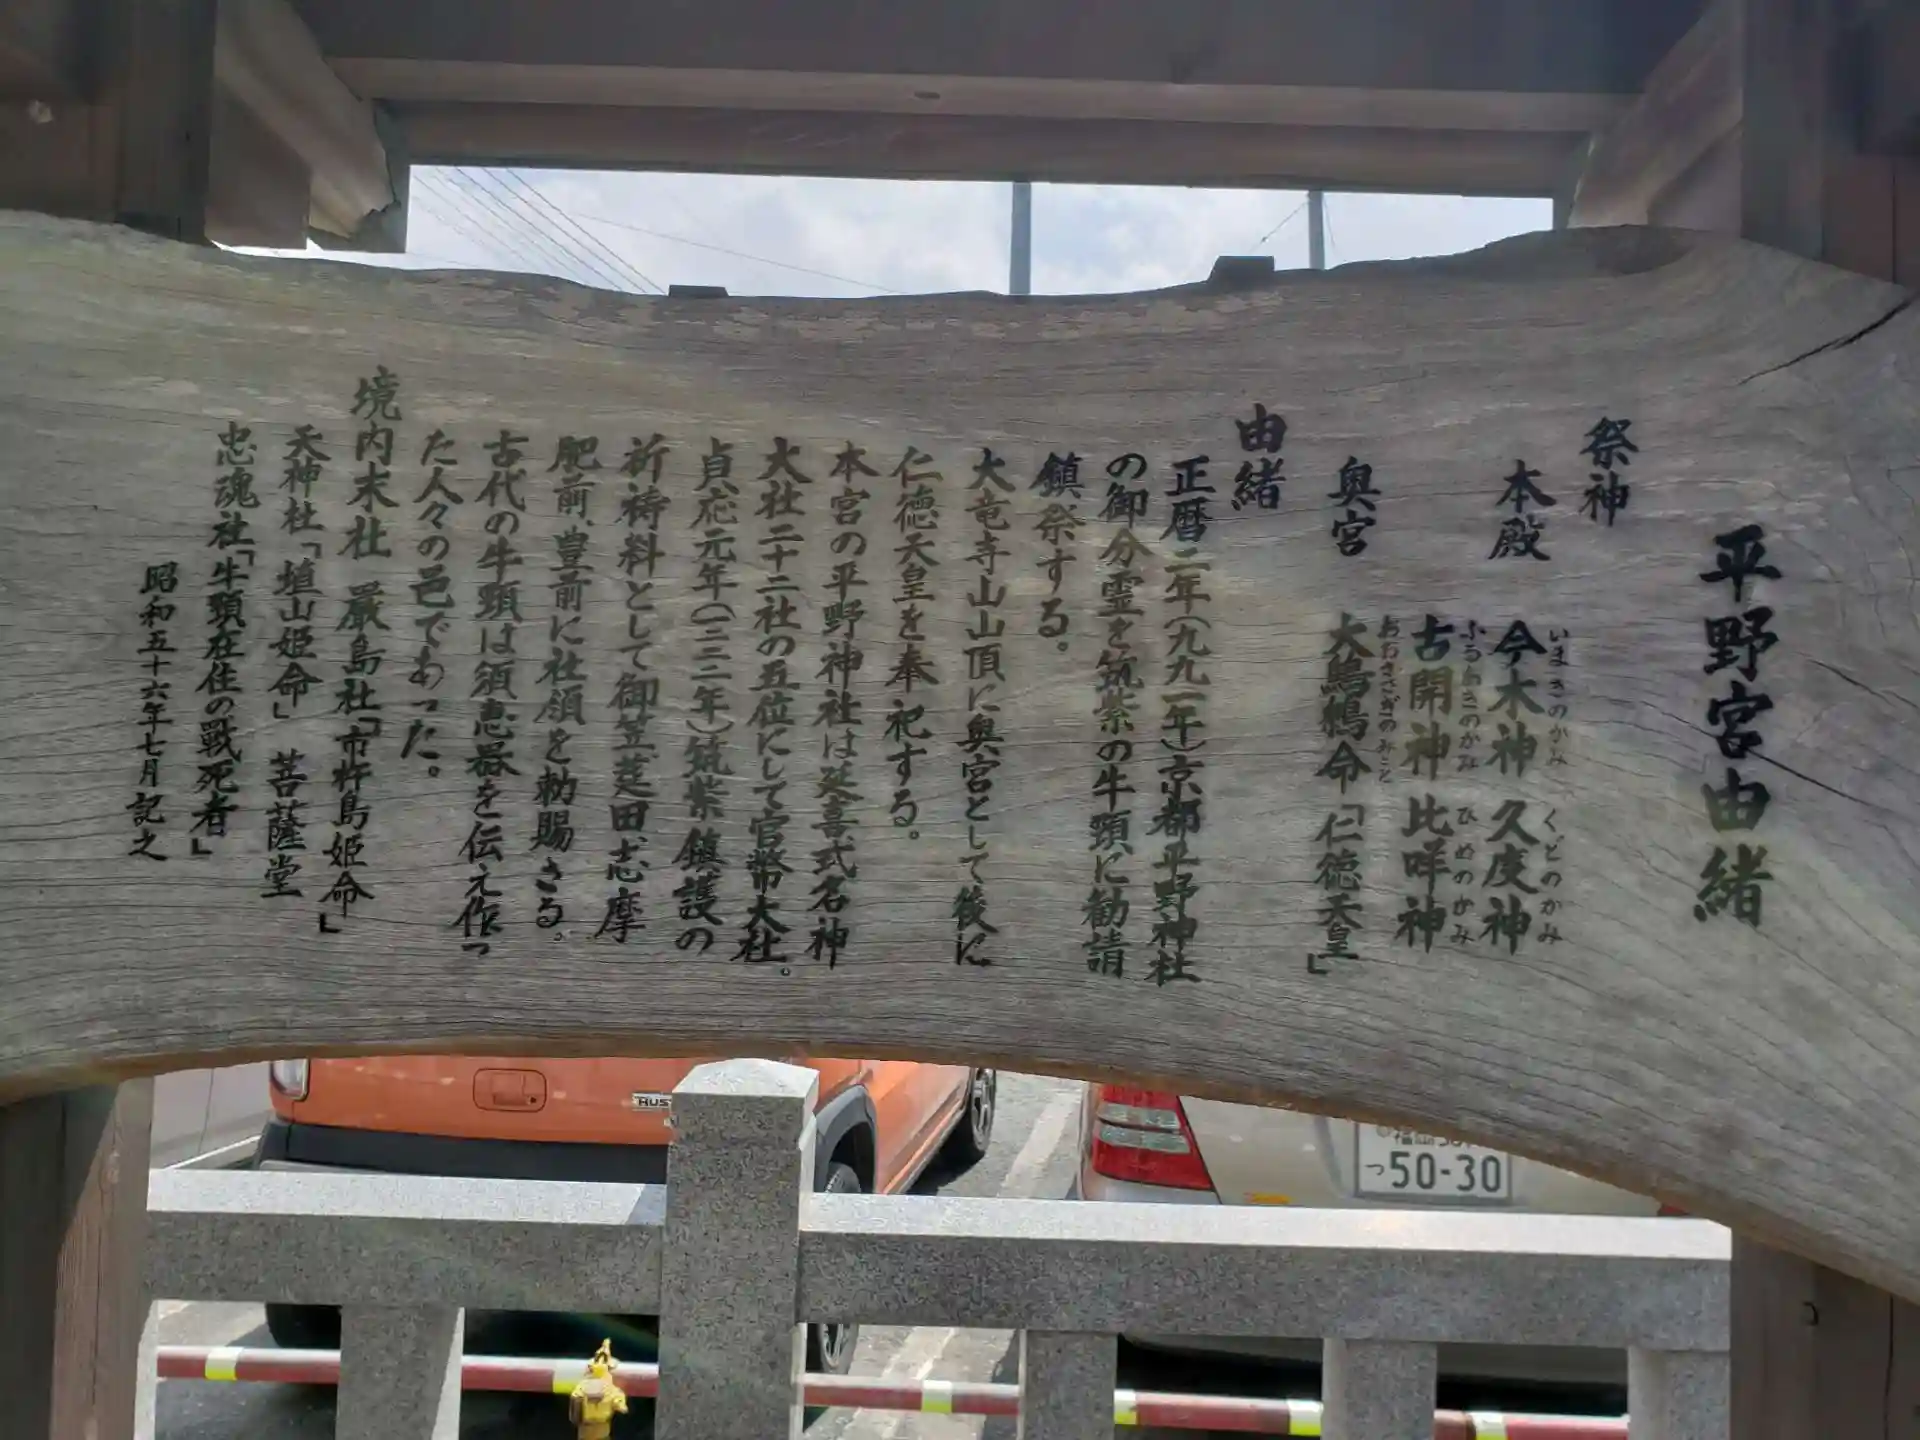 平野宮由緒
祭神
本殿 今木神 久度神
いまきのかみ くどのかみ
古開神 比咩神
ふるあきのかみ ひめのかみ
奥宮 大鷦鷯命「仁徳天皇」
おおさざぎのみこと
由緒
正暦二年(九九一年)京都平野神社
の御分霊を筑紫の牛頸に勧請
鎮祭する。
大竜寺山山頂に奥宮として後に
仁徳天皇を奉祀する。
本宮の平野神社は延喜式名神
大社二十二社の五位にして官幣大社。
貞応元年(一二二二年)筑紫鎮護の
祈祷料として御笠、莚田、志摩
肥前、豊前に社領を勅賜さる。
古代の牛頸は須恵器を伝え作っ
た人々の邑であった。
境内末社 厳島社「市杵島姫命」
天神社「埴山姫命」 菩薩堂
忠魂社「牛頸在住の戰死者」
昭和五十六年七月記之
HUS
つ 50-30